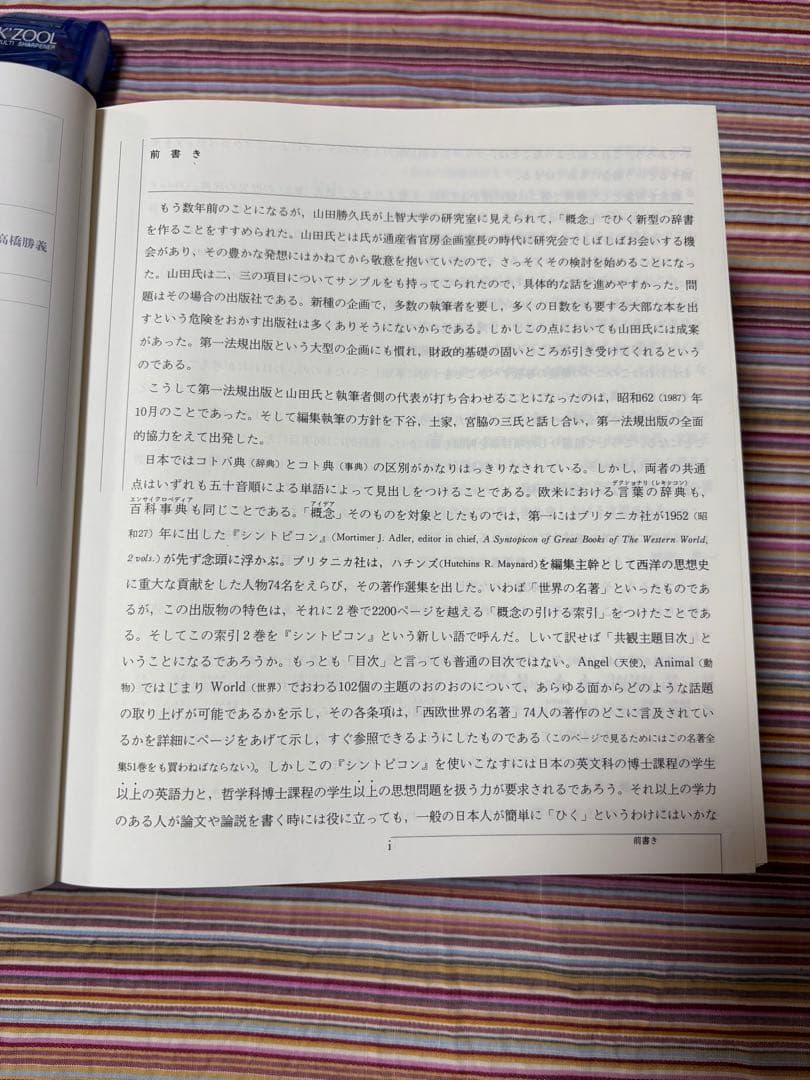 K'ZOOL
MULTI SHARPENER
高橋勝義
前書き
もう数年前のことになるが，山田勝久氏が上智大学の研究室に見えられて，「概念」でひく新型の辞書
を作ることをすすめられた。山田氏とは氏が通産省官房企画室長の時代に研究会でしばしばお会いする機
会があり，その豊かな発想にはかねてから敬意を抱いていたので，さっそくその検討を始めることになっ
た。山田氏は二、三の項目についてサンプルをも持ってこられたので，具体的な話を進めやすかった。問
題はその場合の出版社である。新種の企画で，多数の執筆者を要し，多くの日数をも要する大部な本を出
すという危険をおかす出版社は多くありそうにないからである。しかしこの点においても山田氏には成案
があった。第一法規出版という大型の企画にも慣れ，財政的基礎の固いところが引き受けてくれるという
のである。
こうして第一法規出版と山田氏と執筆者側の代表が打ち合わせることになったのは，昭和62（1987）年
10月のことであった。そして編集執筆の方針を下谷，土家，宮脇の三氏と話し合い，第一法規出版の全面
的協力をえて出発した。
日本ではコトバ典（辞典）とコト典（事典）の区別がかなりはっきりなされている。しかし，両者の共通
点はいずれも五十音順による単語によって見出しをつけることである。欧米における言葉の辞典も，
ディクショナリ（レキシコン）
百科事典も同じことである。「概念」そのものを対象としたものでは，第一にはブリタニカ社が1952（昭
エンサイクロペディア
アイデア
和27）年に出した『シントピコン』(Mortimer J. Adler, editor in chief, A Syntopicon of Great Books of The Western World,
2 vols.) が先ず念頭に浮かぶ。ブリタニカ社は，ハチンズ(Hutchins R. Maynard)を編集主幹として西洋の思想史
に重大な貢献をした人物74名をえらび，その著作選集を出した。いわば「世界の名著」といったものであ
るが，この出版物の特色は，それに２巻で2200ページを越える「概念の引ける索引」をつけたことであ
る。そしてこの索引２巻を『シントピコン』という新しい語で呼んだ。しいて訳せば「共観主題目次」と
いうことになるであろうか。もっとも「目次」と言っても普通の目次ではない。Angel（天使），Animal（動
物）ではじまり World（世界）でおわる102個の主題のおのおのについて，あらゆる面からどのような話題
の取り上げが可能であるかを示し，その各条項は，「西欧世界の名著」74人の著作のどこに言及されてい
るかを詳細にページをあげて示し，すぐ参照できるようにしたものである（このページで見るためにはこの名著全
集51巻をも買わねばならない）。しかしこの『シントピコン』を使いこなすには日本の英文科の博士課程の学生
以上の英語力と，哲学科博士課程の学生以上の思想問題を扱う力が要求されるであろう。それ以上の学力
のある人が論文や論説を書く時には役に立っても，一般の日本人が簡単に「ひく」というわけにはいかな
i
前書き